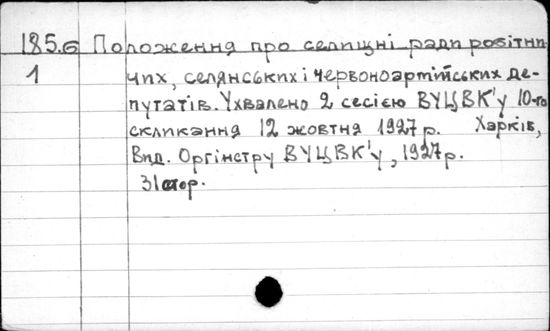 185.6 Положення про селищні ради робітни-
1 чих, селянських і червоноармійських де-
путатів. Ухвалено 2 сесією ВУЦВК'у 10-го
скликання 12 жовтня 1927 р. Харків,
Вид. Оргінстру ВУЦВК'у, 1927 р.
31 стор.